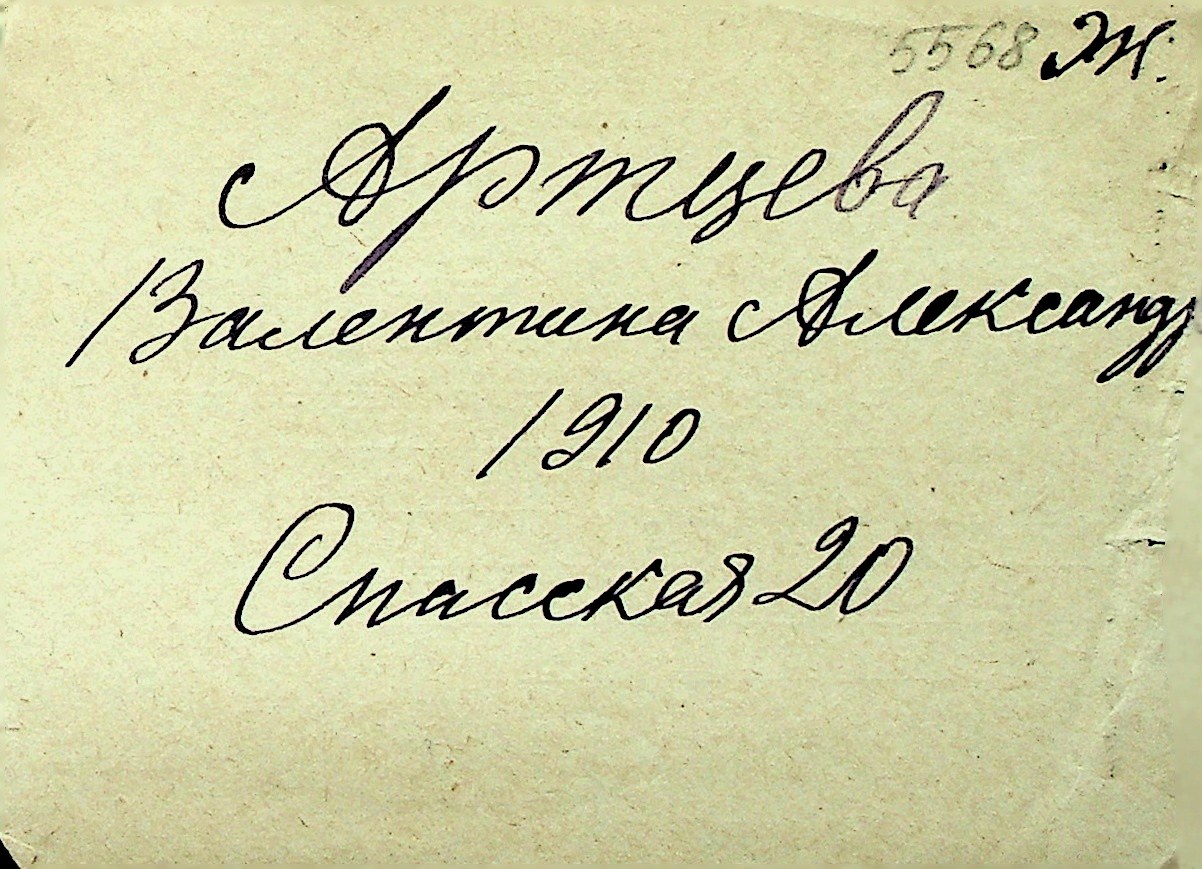 5568 Ж.
Артцева
Валентина Александр
1910
Спасская 20